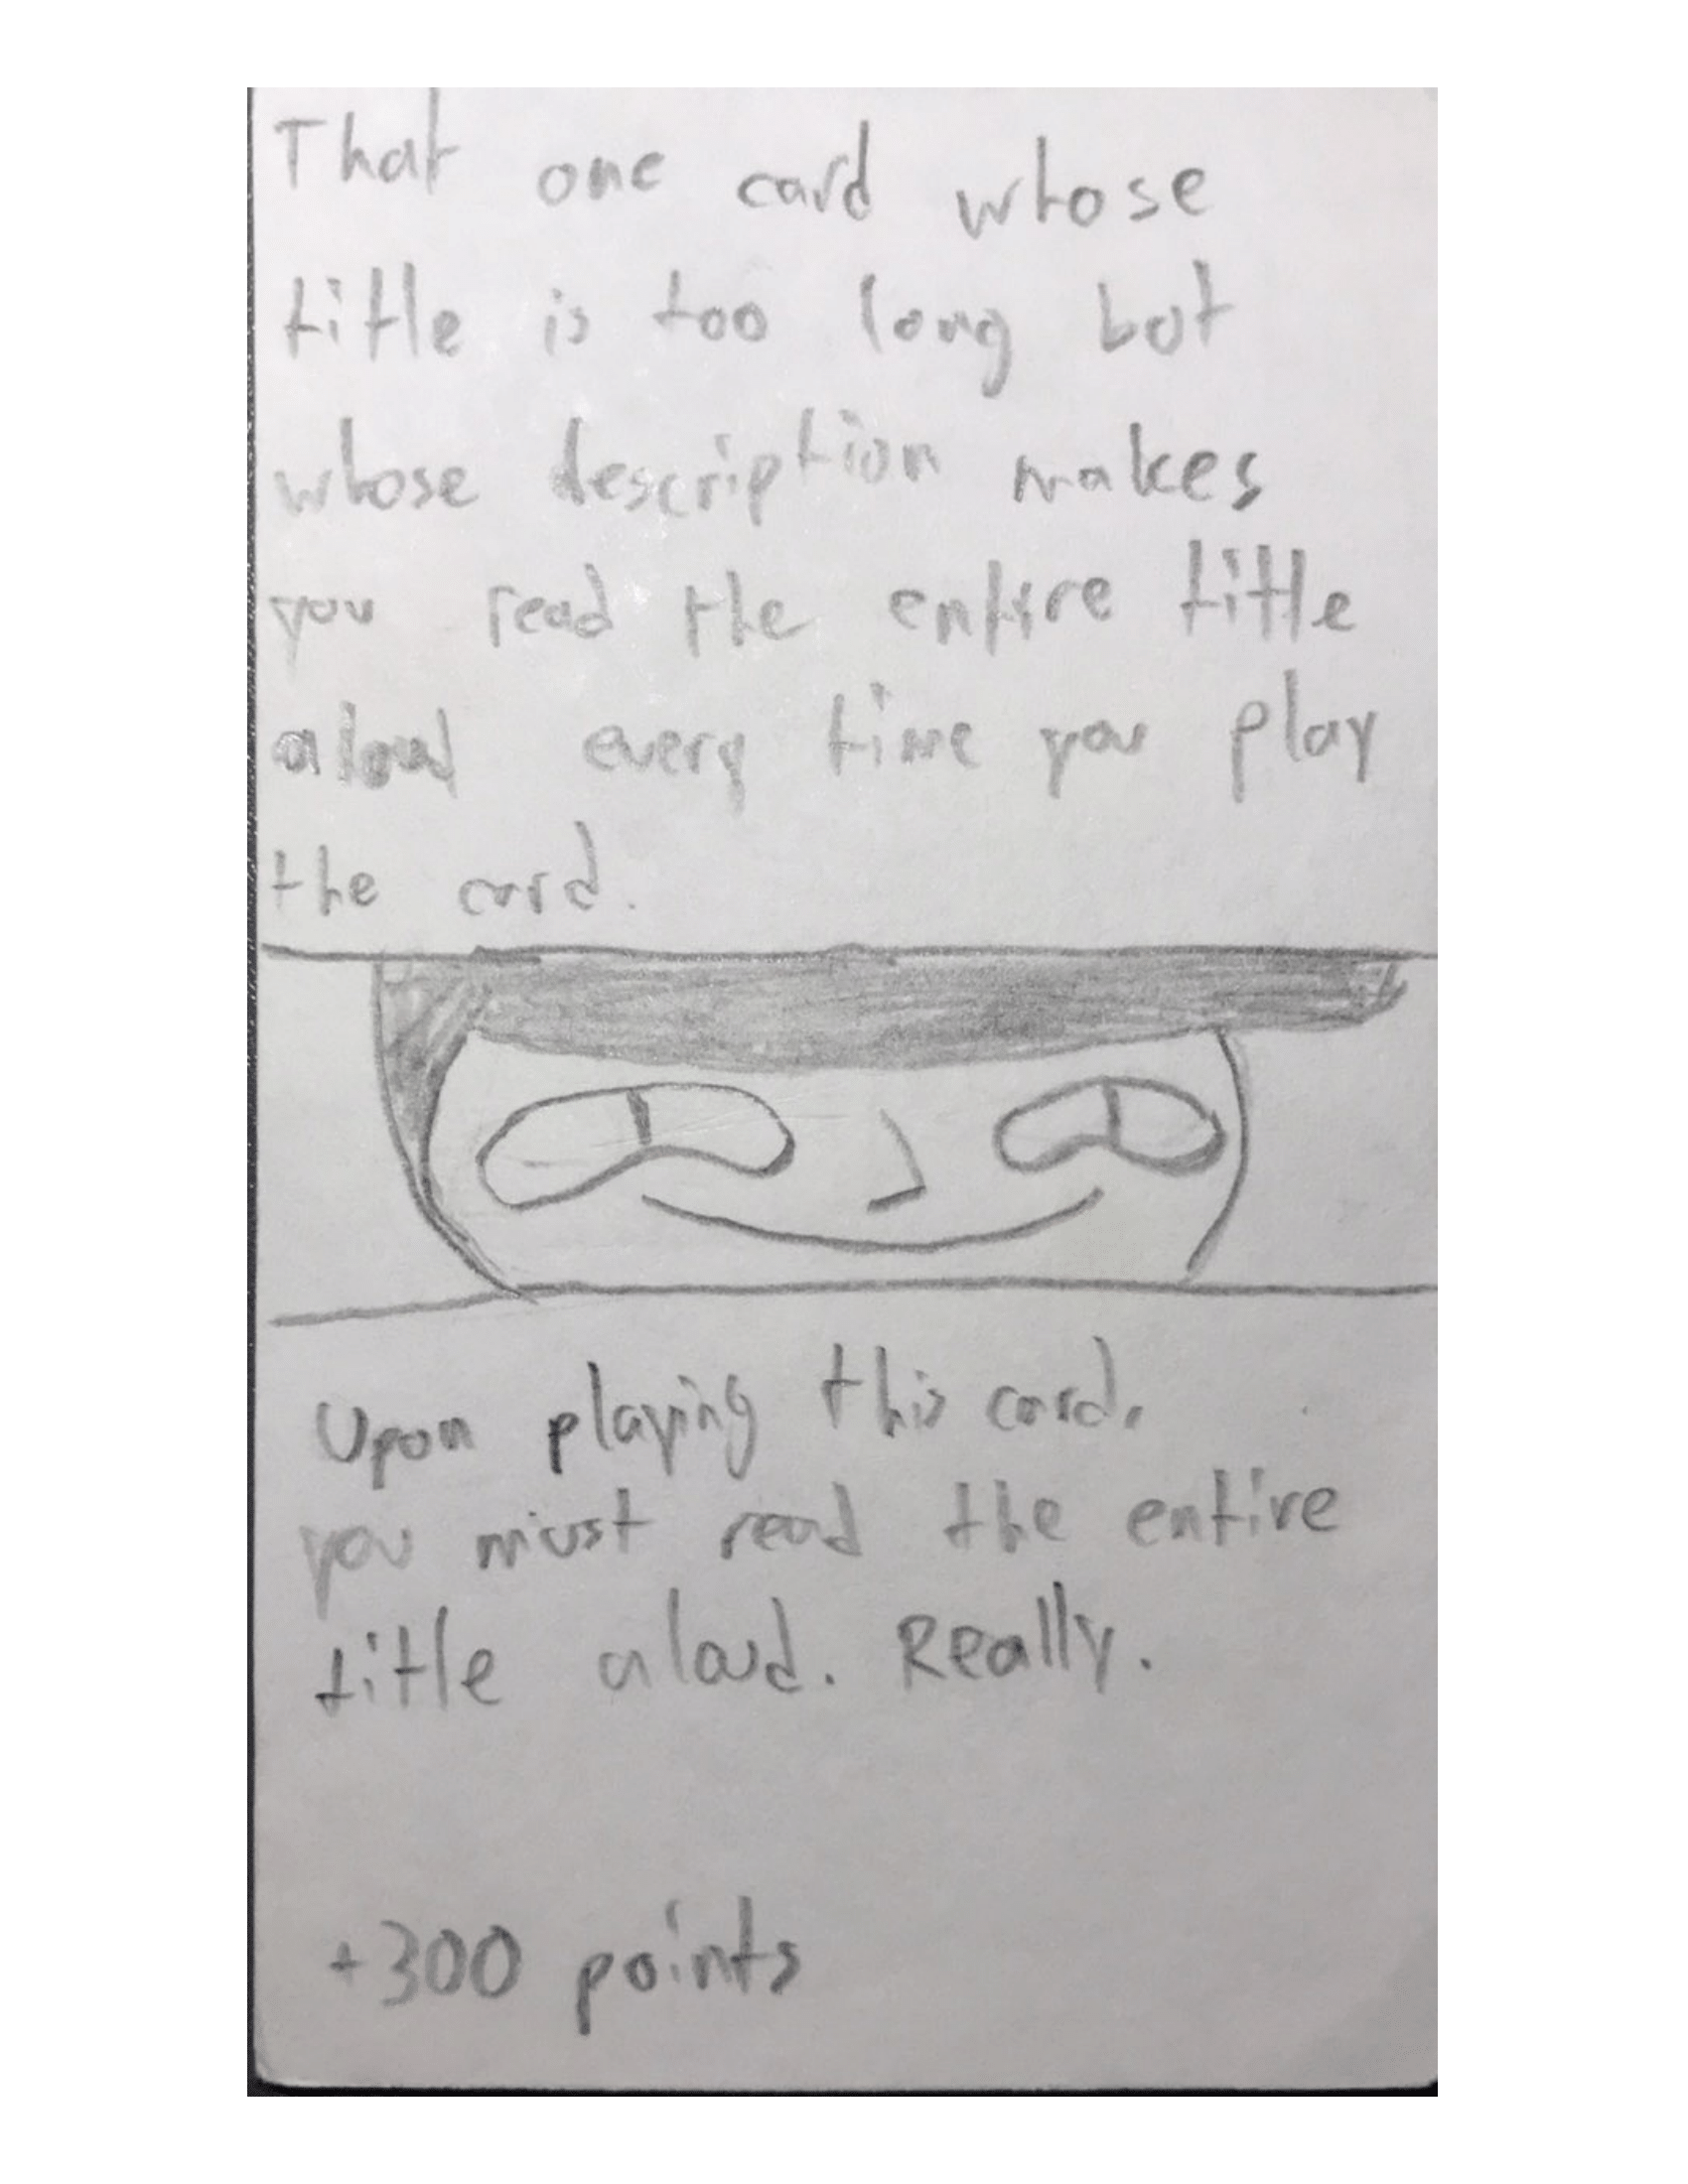 That one card whose
title is too long but
whose description makes
you read the entire title
aloud every time you play
the card.
Upon playing this card,
you must read the entire
title aloud. Really.
+300 points